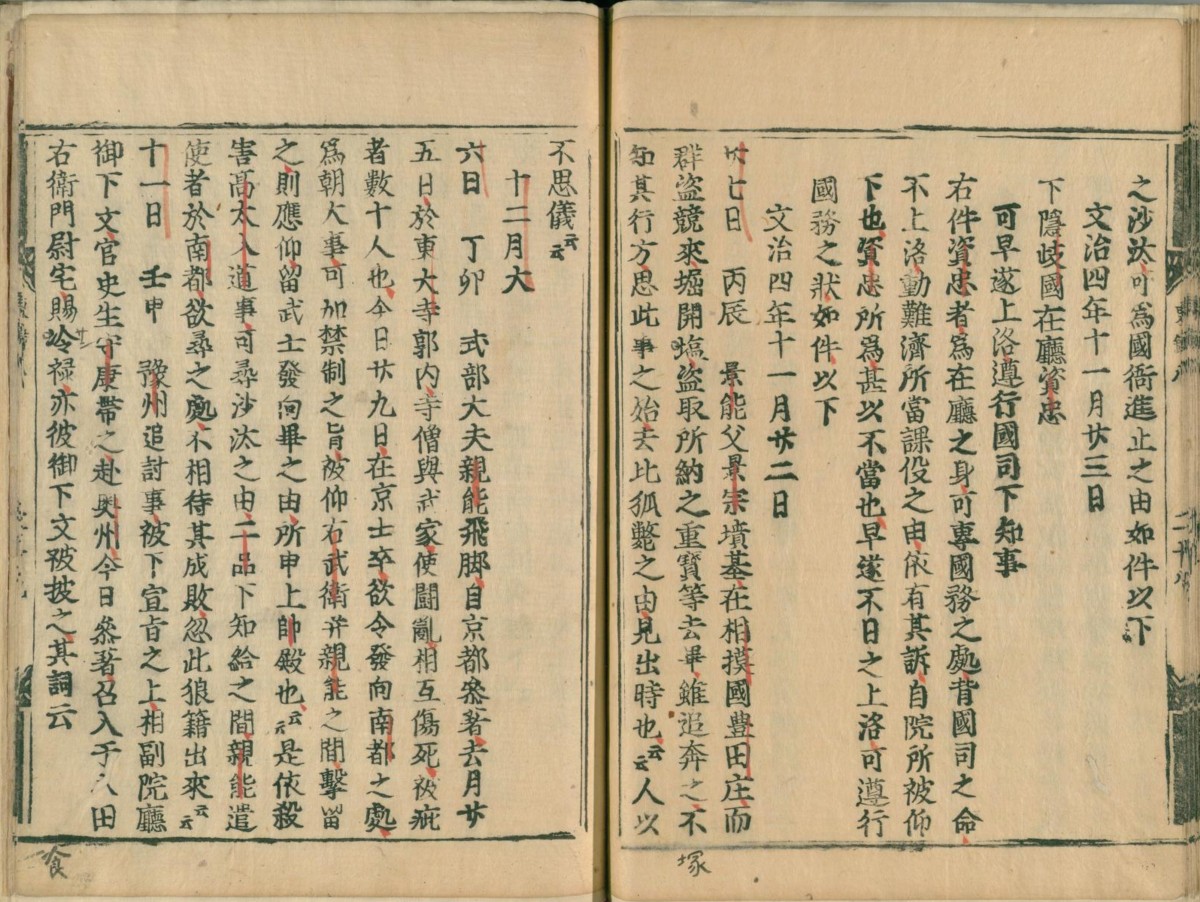 之沙汰可為國衙進止之由如件以下
文治四年十一月廿三日
下隱岐國在廳資忠
可早遂上洛遵行國司下知事
右件資忠者為在廳之身可專國務之處背國司之命
不上洛動難濟所當課役之由依有其訴自院所被仰
下也資忠所為甚以不當也早遂不日之上洛可遵行
國務之狀如件以下
文治四年十一月廿二日
廿七日　丙辰　景能父景宗墳墓在相摸國豊田庄而
群盜競來堀開塩盜取所納之重寳等去畢雖追奔之不
知其行方思此事之始去比狐斃之由見出時也云云人以
塚
不思儀云云
十二月大
六日　丁卯　式部大夫親能飛脚自京都參著去月廿
五日於東大寺郭内寺僧與武家使闘亂相互傷死被疵
者數十人也今日廿九日在京士卒欲令發向南都之處
為朝大事可加禁制之旨被仰右武衛并親能之間擊留
之則應仰留武士發向畢之由所申上帥殿也云云是依殺
害髙太入道事可尋沙汰之由二品下知給之間親能遣
使者於南都欲尋之處不相待其成敗忽此狼籍出來云云
十一日　壬申　豫州追討事被下宣旨之上相副院廳
御下文官史生守康帶之赴奥州今日參著召入于八田
右衛門尉宅賜冷禄亦彼御下文被披之其詞云
食